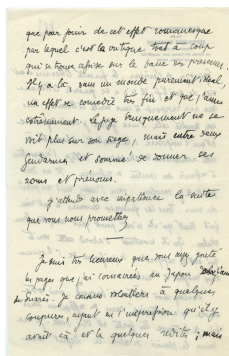 que pour jouir de cet effet romanesque
par lequel c'est la critique tout à coup
qui se trouve assise sur le banc des prévenus.
Il y a là, dans un monde purement idéal
un effet de comédie très fin et que j'aime
extrêmement. Le juge brusquement ne se
voit plus sur son siège, mais entre deux
gendarmes et sommé de donner ses
noms et prénoms.
J'attends avec impatience la suite
que vous nous promettez
Je suis très heureux que vous ayez goûté
les pages que j'ai consacrées au Japon
Je consens volontiers à quelques
coupures, ayant eu l'impression qu'il y
avait çà et là quelques redites ; mais